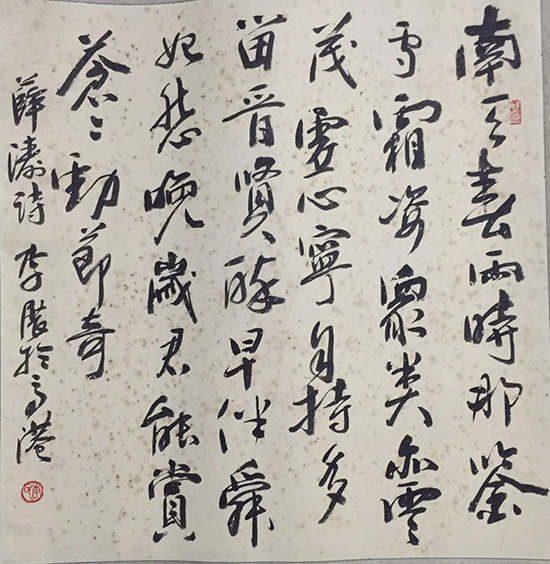 南天春雨時那鑒
雪霜姿眾类亦雲
茂虛心寧自持多
留晋賢醉早伴舜
妃愁晚歲君能賞
蒼々勁節奇
薛濤詩 李於高港